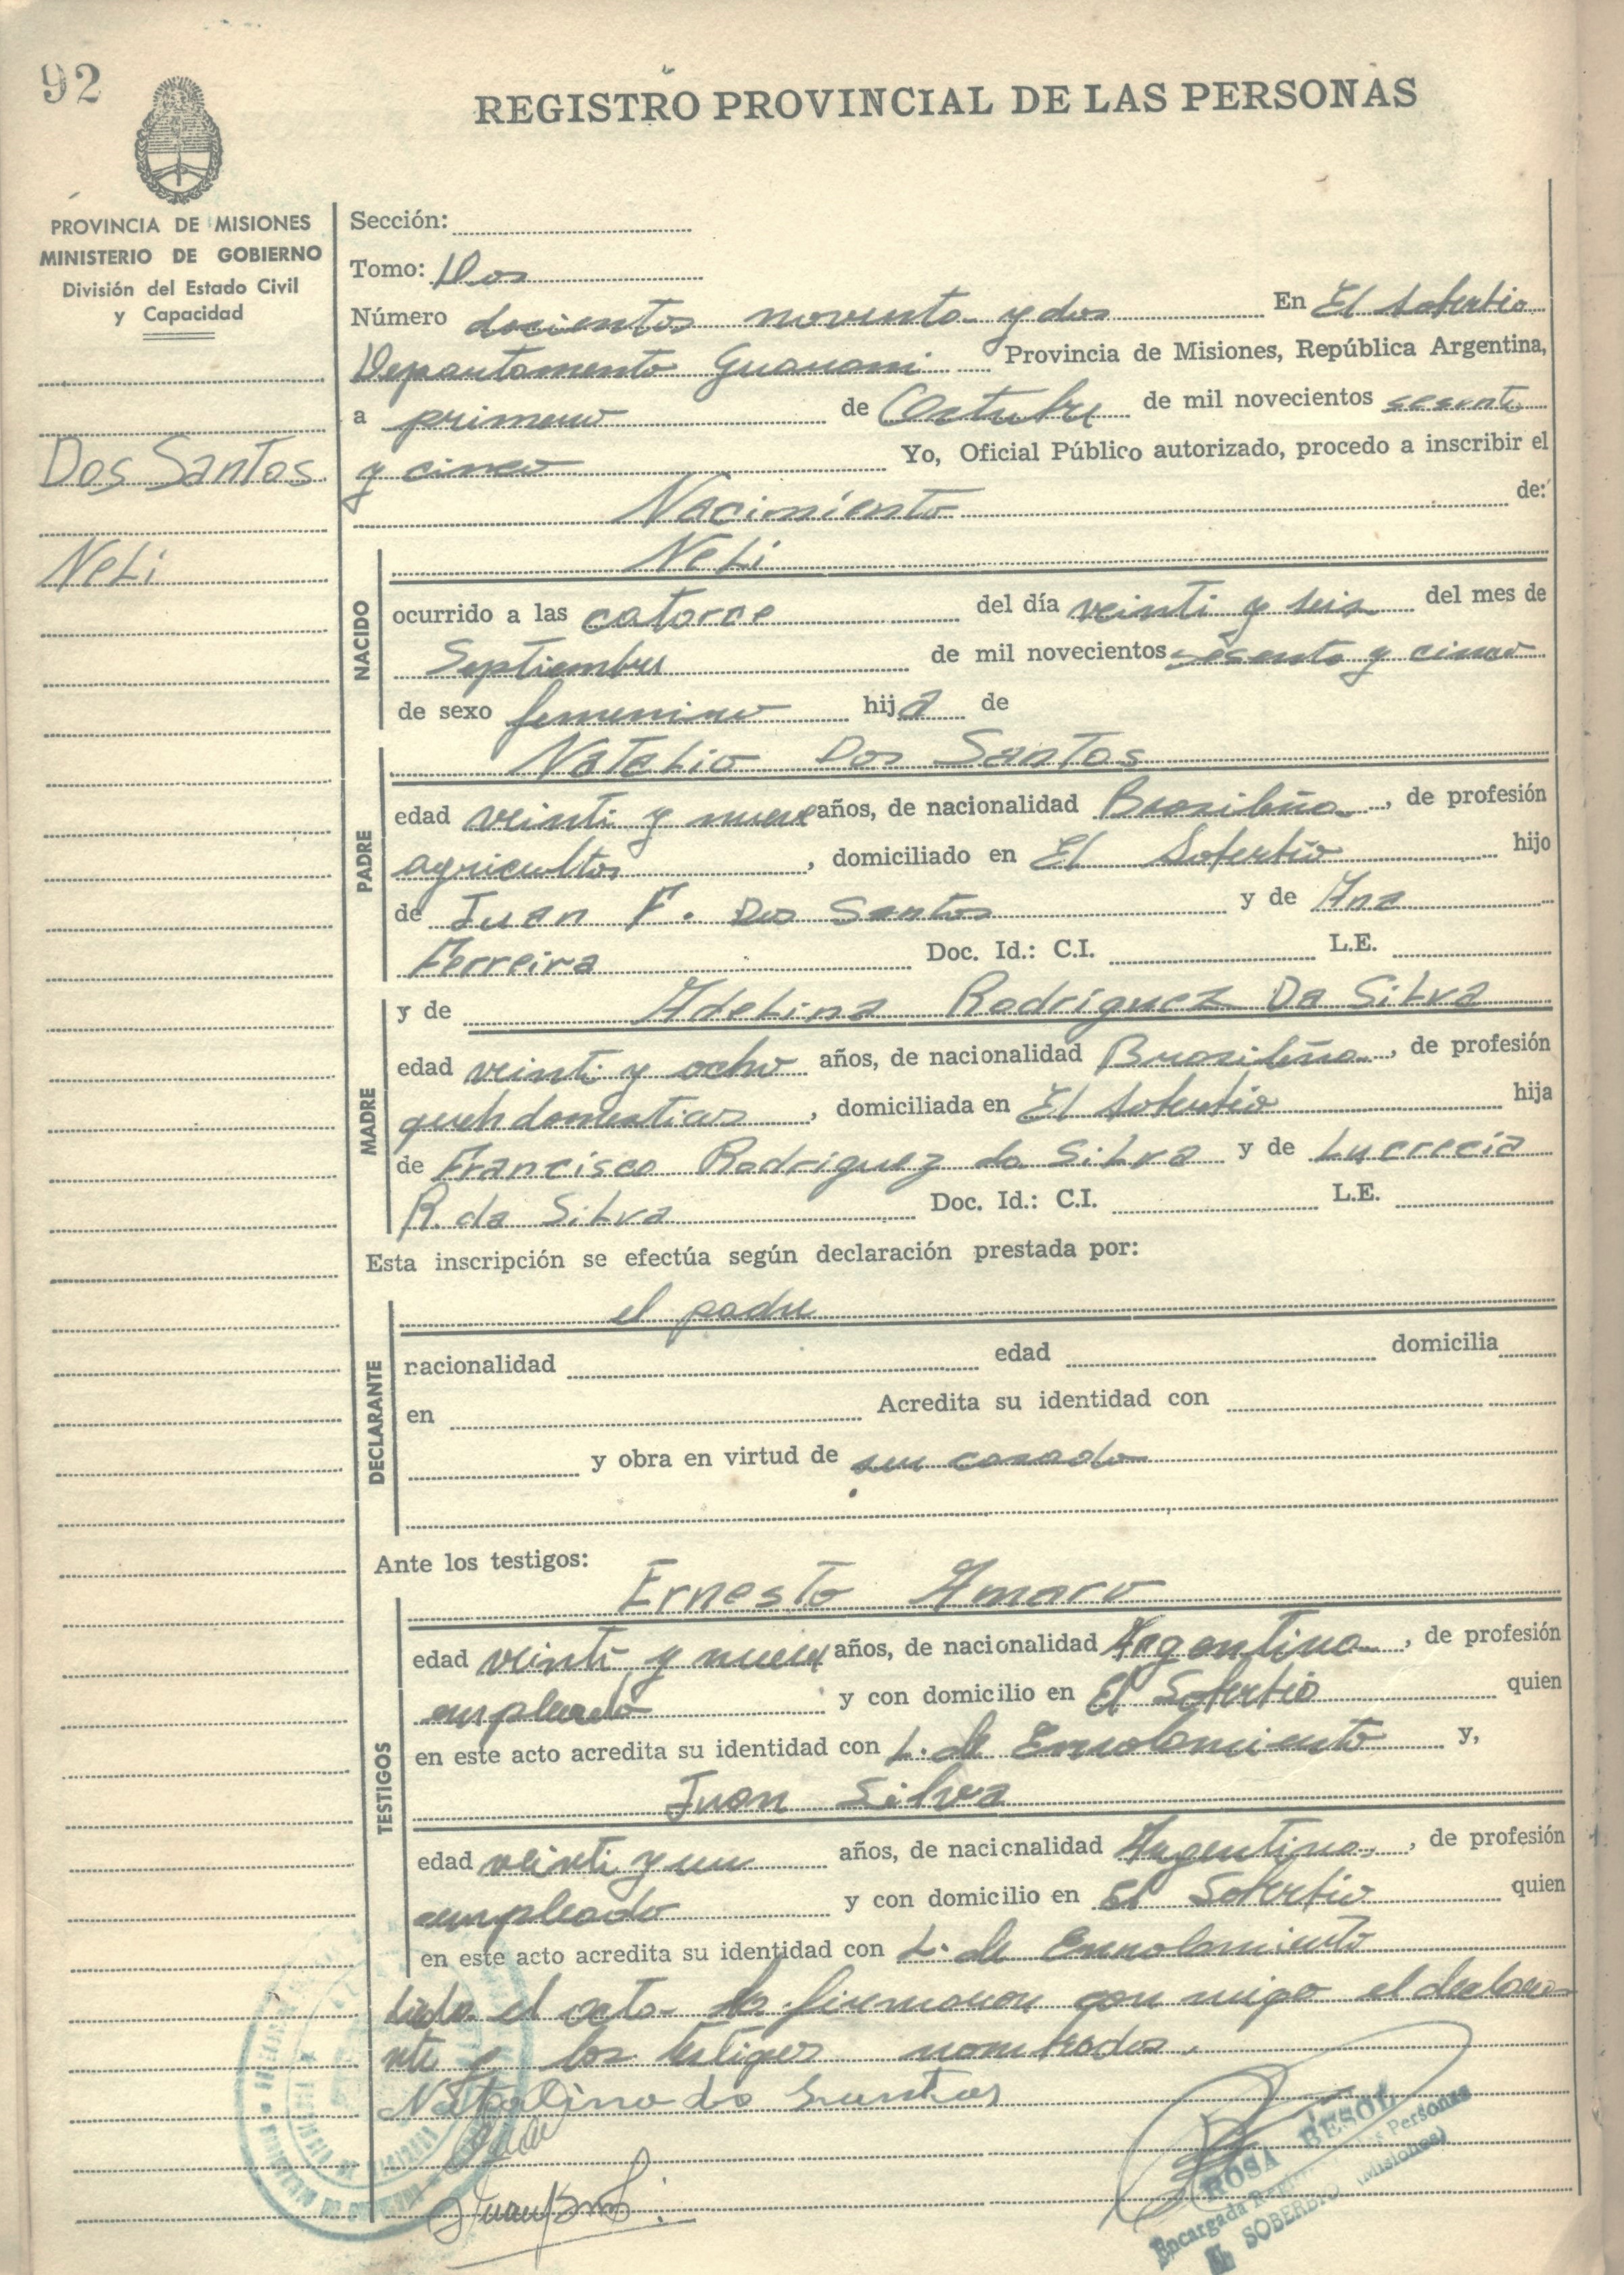 92
REGISTRO PROVINCIAL DE LAS PERSONAS
PROVINCIA DE MISIONES
MINISTERIO DE GOBIERNO
División del Estado Civil
y Capacidad
Dos Santos
Neli
Sección:
Tomo: Dos
Número docientos noventa y dos En El Soberbio
Departamento Guarani Provincia de Misiones, República Argentina,
a primero de Octubre de mil novecientos sesenta
y cinco Yo, Oficial Público autorizado, procedo a inscribir el
Nacimiento de:
NACIDO
Neli
ocurrido a las catorce del día veinti y seis del mes de
Septiembre de mil novecientos sesenta y cinco
de sexo femenino hija de
PADRE
Natalio Dos Santos
edad veinti y nueve años, de nacionalidad Brasileña, de profesión
agricultor, domiciliado en El Soberbio hijo
de Juan F. Dos Santos y de Ana
Ferreira Doc. Id.: C.I. L.E.
MADRE
y de Adelina Rodriguez Da Silva
edad veinti y ocho años, de nacionalidad Brasileña, de profesión
domesticos, domiciliada en El Soberbio hija
de Francisco Rodriguez da Silva y de Lucrecia
R. da Silva Doc. Id.: C.I. L.E.
Esta inscripción se efectúa según declaración prestada por:
DECLARANTE
el padre
nacionalidad edad domicilia
en Acredita su identidad con
y obra en virtud de ser casado
Ante los testigos:
TESTIGOS
Ernesto Amaro
edad veinti y nueve años, de nacionalidad Argentina, de profesión
empleado y con domicilio en El Soberbio quien
en este acto acredita su identidad con L. de Enrolamiento y,
Juan Silva
edad veinti y un años, de nacionalidad Argentina, de profesión
empleado y con domicilio en El Soberbio quien
en este acto acredita su identidad con L. de Enrolamiento
Leida el acta la firmaron con migo el declara
nte y los testigos nombrados.
Natalino do Santos
ROSA BESOL
Encargada Personas
EL SOBERBIO (Misiones)